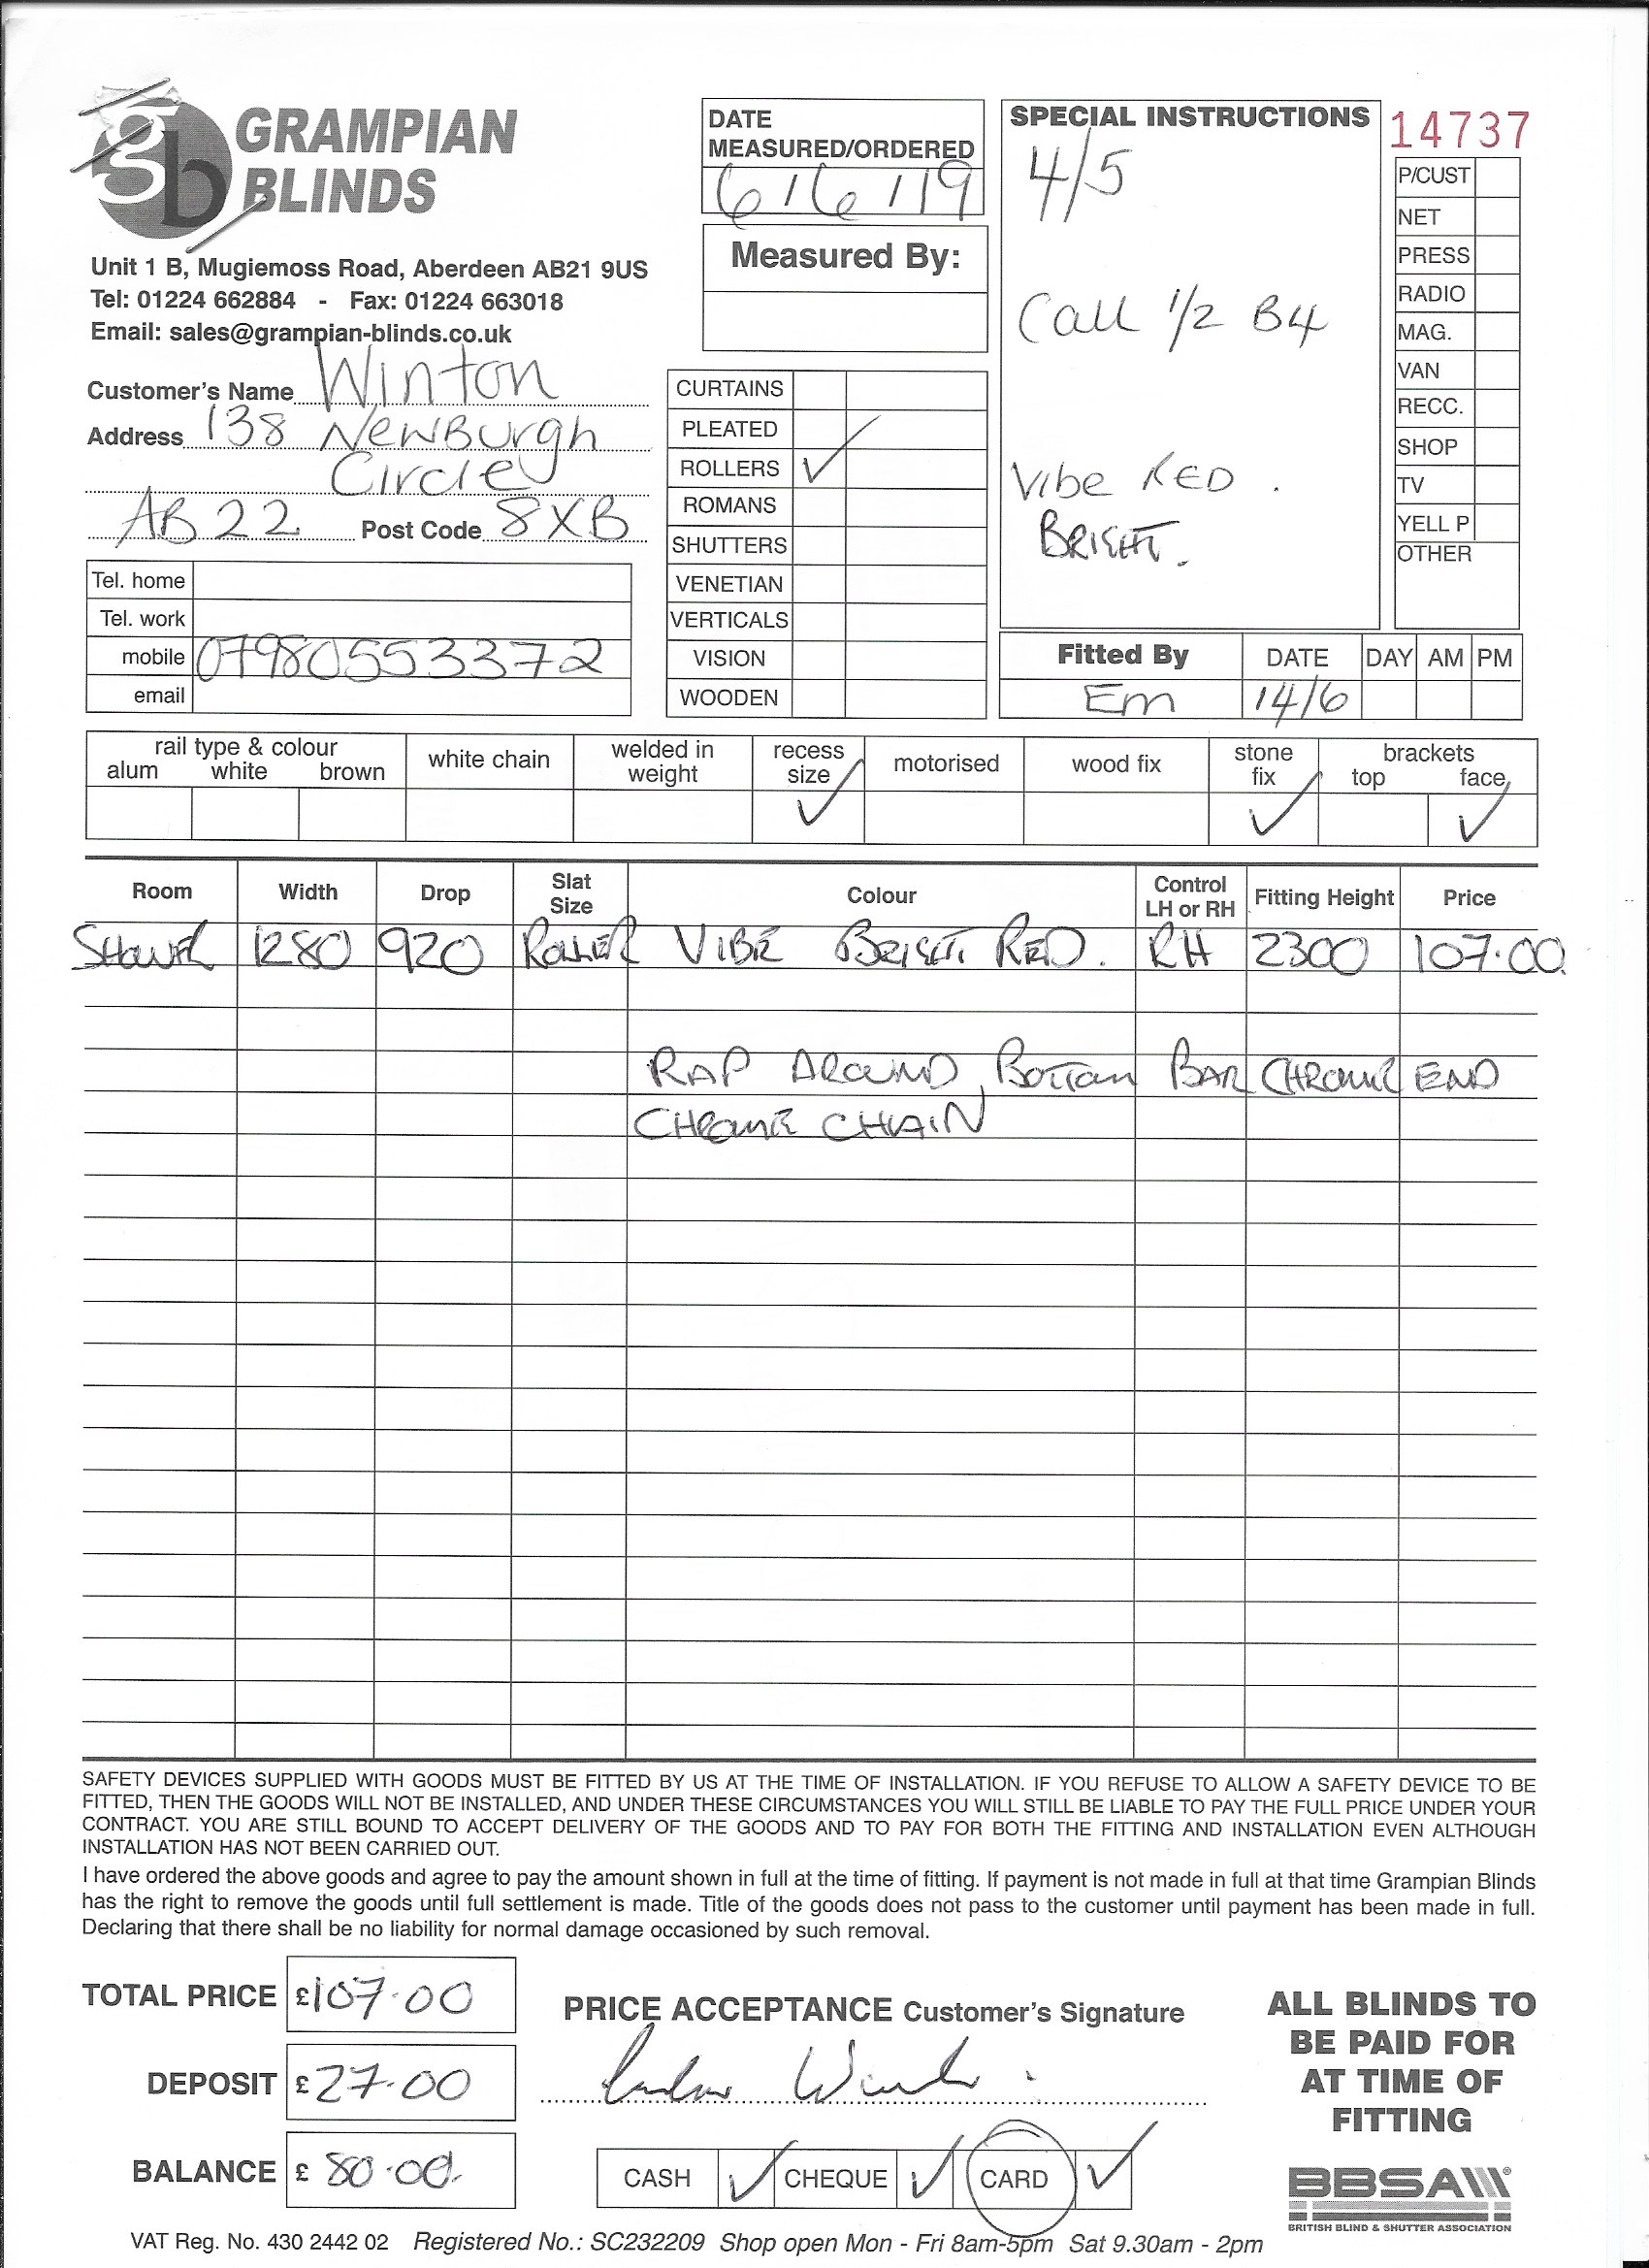 gb GRAMPIAN BLINDS
Unit 1 B, Mugiemoss Road, Aberdeen AB21 9US
Tel: 01224 662884 - Fax: 01224 663018
Email: sales@grampian-blinds.co.uk
Customer's Name Winton
Address 138 Newburgh
Circle
AB22 Post Code 8XB
Tel. home
Tel. work
mobile 07980553372
email
DATE
MEASURED/ORDERED
6/6/19
Measured By:
CURTAINS
PLEATED
ROLLERS ✓
ROMANS
SHUTTERS
VENETIAN
VERTICALS
VISION
WOODEN
SPECIAL INSTRUCTIONS
4/5
Call 1/2 B4
Vibe RED.
BRIGHT.
14737
P/CUST
NET
PRESS
RADIO
MAG.
VAN
RECC.
SHOP
TV
YELL P
OTHER
Fitted By DATE DAY AM PM
Em 14/6
rail type & colour white chain welded in weight recess size motorised wood fix stone fix brackets
alum white brown top face
✓ ✓ ✓
Room Width Drop Slat Size Colour Control LH or RH Fitting Height Price
SHOWER 1280 920 ROLLER VIBE BRIGHT RED. RH 2300 107.00
RAP AROUND BOTTOM BAR CHROME END
CHROME CHAIN
SAFETY DEVICES SUPPLIED WITH GOODS MUST BE FITTED BY US AT THE TIME OF INSTALLATION. IF YOU REFUSE TO ALLOW A SAFETY DEVICE TO BE
FITTED, THEN THE GOODS WILL NOT BE INSTALLED, AND UNDER THESE CIRCUMSTANCES YOU WILL STILL BE LIABLE TO PAY THE FULL PRICE UNDER YOUR
CONTRACT. YOU ARE STILL BOUND TO ACCEPT DELIVERY OF THE GOODS AND TO PAY FOR BOTH THE FITTING AND INSTALLATION EVEN ALTHOUGH
INSTALLATION HAS NOT BEEN CARRIED OUT.
I have ordered the above goods and agree to pay the amount shown in full at the time of fitting. If payment is not made in full at that time Grampian Blinds
has the right to remove the goods until full settlement is made. Title of the goods does not pass to the customer until payment has been made in full.
Declaring that there shall be no liability for normal damage occasioned by such removal.
TOTAL PRICE £107.00
DEPOSIT £27.00
BALANCE £80.00
PRICE ACCEPTANCE Customer's Signature
CASH ✓ CHEQUE ✓ CARD ✓
ALL BLINDS TO
BE PAID FOR
AT TIME OF
FITTING
BBSA
BRITISH BLIND & SHUTTER ASSOCIATION
VAT Reg. No. 430 2442 02 Registered No.: SC232209 Shop open Mon - Fri 8am-5pm Sat 9.30am - 2pm